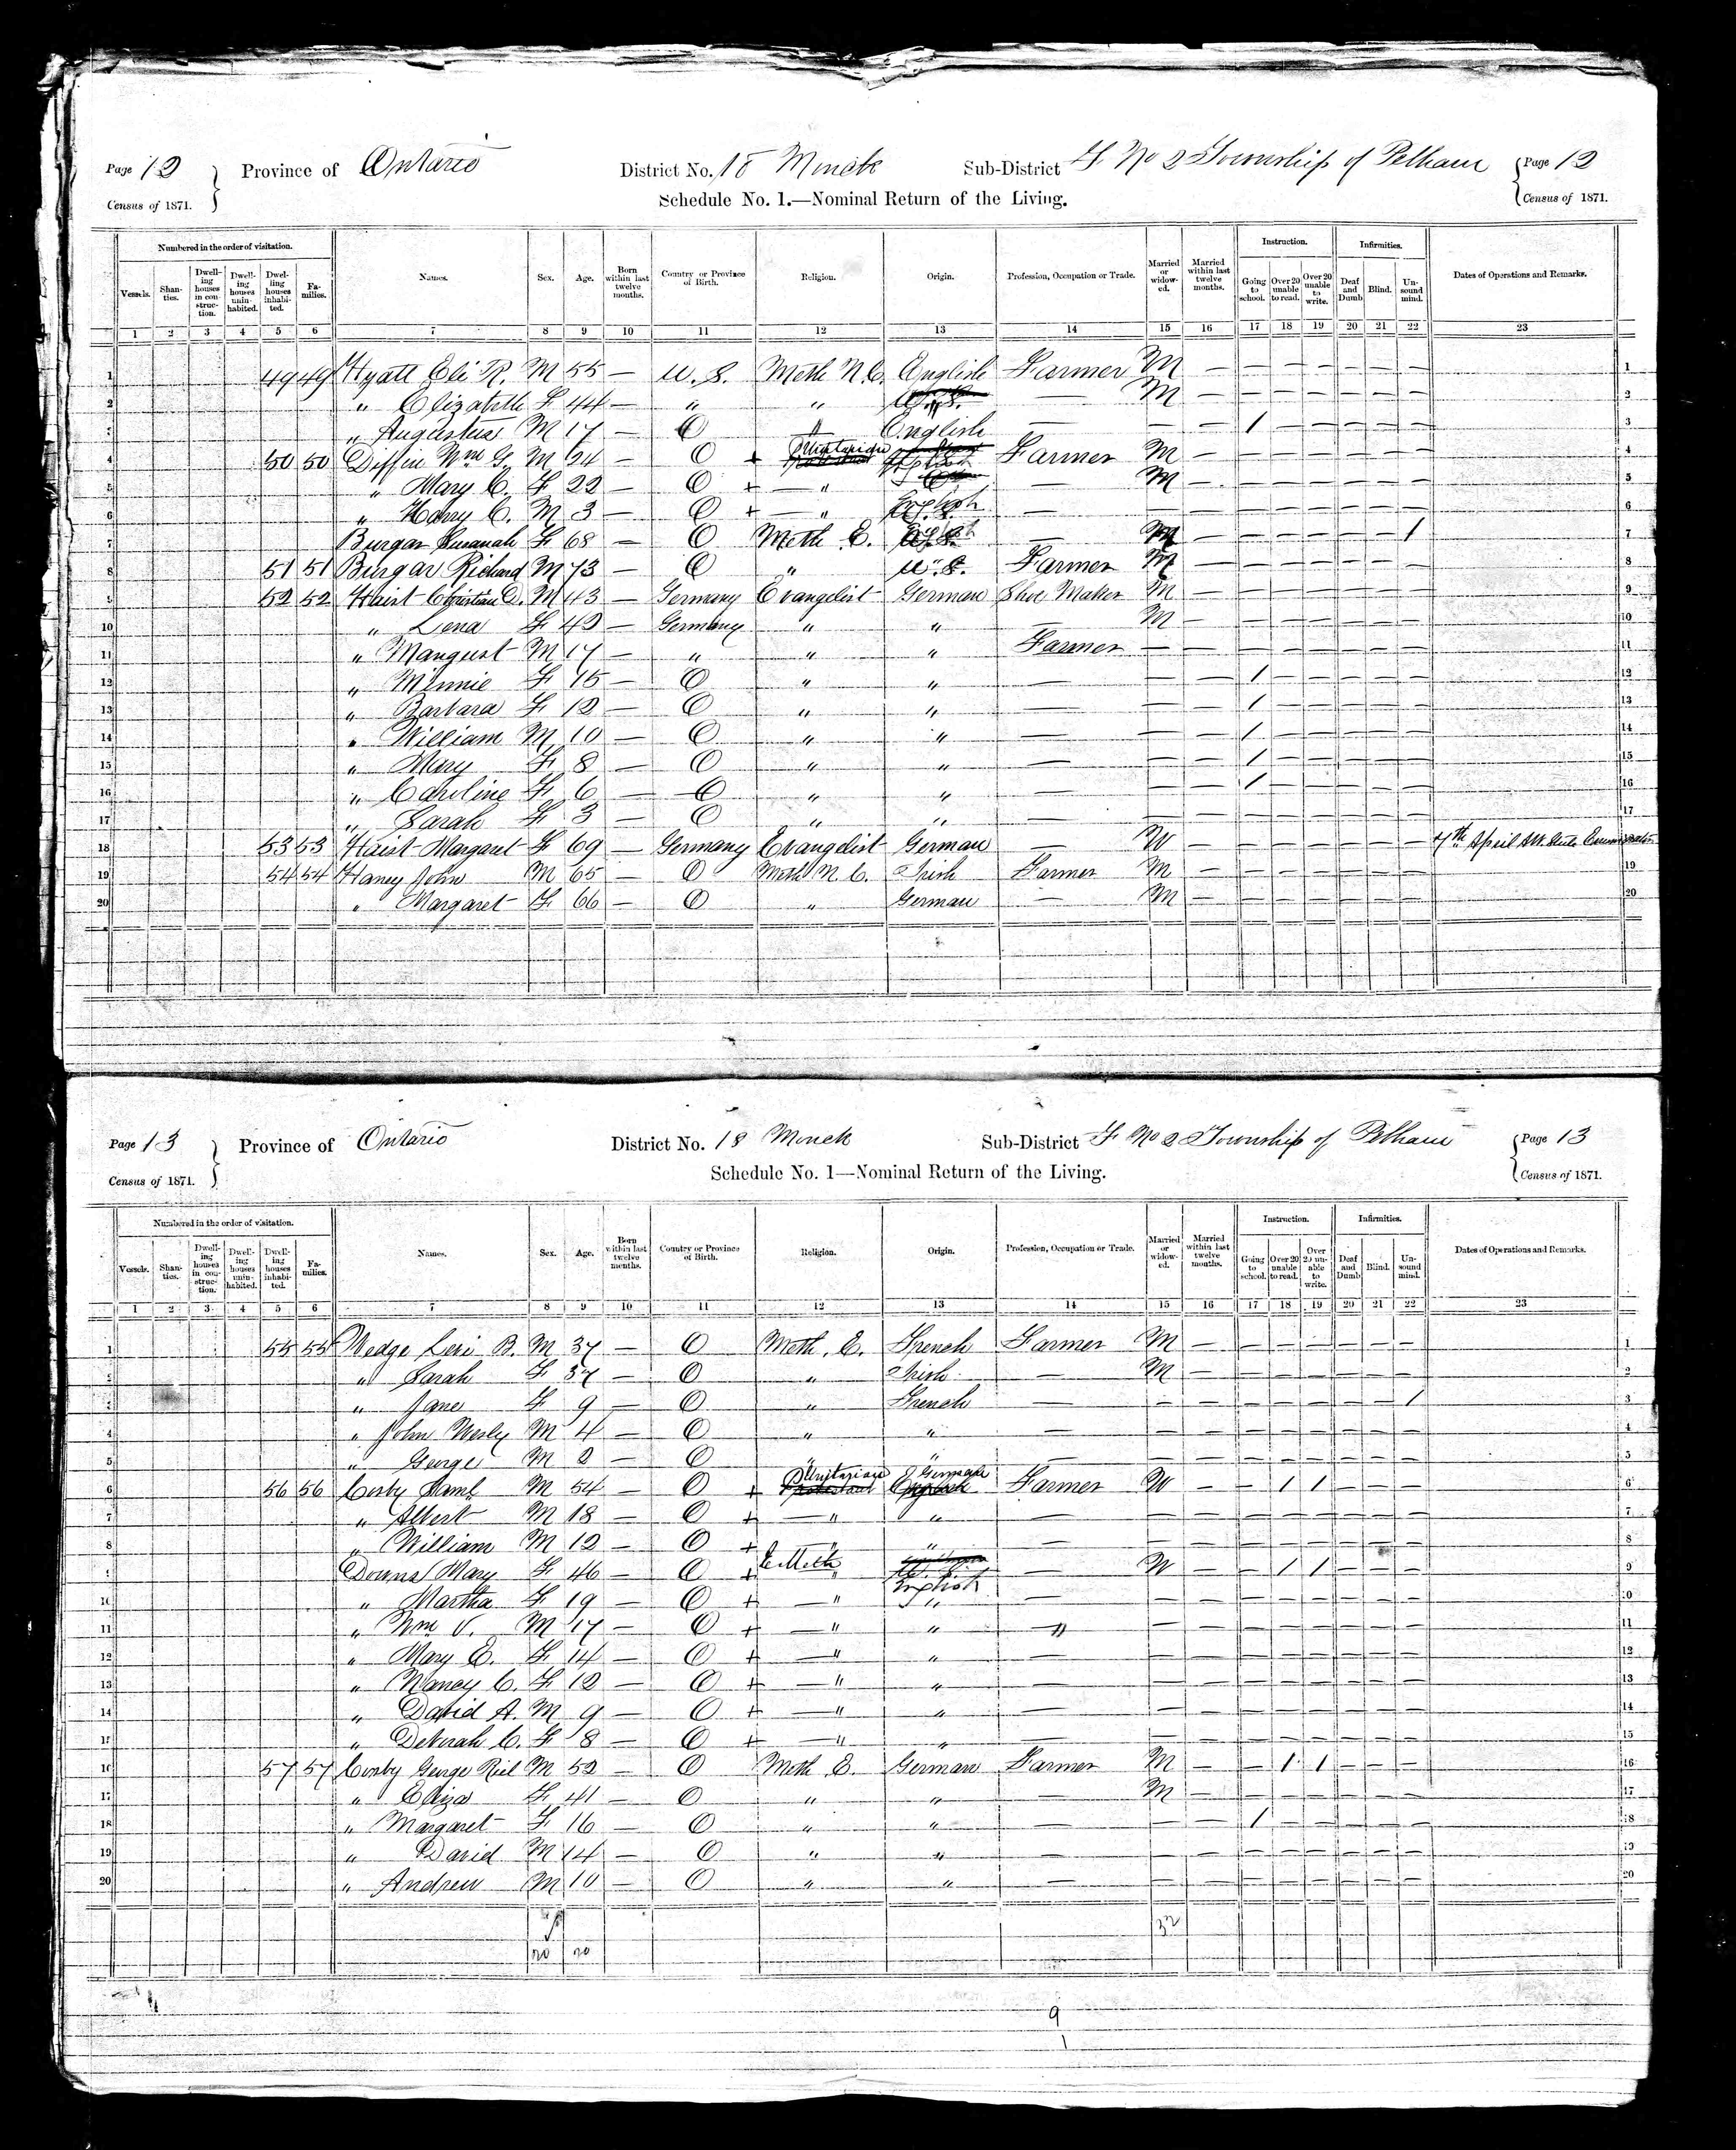 Page 12 Province of Ontario District No. 18 Monck Sub-District F No 2 Township of Pelham Page 12
Census of 1871. Schedule No. 1.—Nominal Return of the Living. Census of 1871.
Numbered in the order of visitation. Instruction. Infirmities.
Vessels. Shanties. Dwelling houses in construction. Dwelling houses uninhabited. Dwelling houses inhabited. Families. Names. Sex. Age. Born within last twelve months. Country or Province of Birth. Religion. Origin. Profession, Occupation or Trade. Married or widowed. Married within last twelve months. Going to school. Over 20 unable to read. Over 20 unable to write. Deaf and Dumb Blind. Unsound mind. Dates of Operations and Remarks.
1 2 3 4 5 6 7 8 9 10 11 12 13 14 15 16 17 18 19 20 21 22 23
1 49 49 Hyatt Eli R. M 55 — U.S. Meth N.C. English Farmer M — — — — — — — 1
2 " Elizabeth F 44 — " " — M — — — — — — — 2
3 " Augustus M 17 — O " English — — — 1 — — — — — 3
4 50 50 Diffin Wm G. M 24 — O + Farmer M — — — — — — — 4
5 " Mary C. F 22 — O + — " — M — — — — — — — 5
6 " Harry C. M 3 — O + — " — — — — — — — — — 6
7 Burgar Susanah F 68 — O Meth E. — — — — — — — 1 7
8 51 51 Burgar Richard M 73 — O " U.S. Farmer — — — — — — — 8
9 52 52 Haist Christian D. M 43 — Germany Evangelist German Shoe Maker M — — — — — — — 9
10 " Lena F 42 — Germany " " — M — — — — — — — 10
11 " Mangust M 17 — " " " Farmer — — — — — — — — 11
12 " Minnie F 15 — O " " — — — 1 — — — — — 12
13 " Barbara F 12 — O " " — — — 1 — — — — — 13
14 " William M 10 — O " " — — — 1 — — — — — 14
15 " Mary F 8 — O " " — — — 1 — — — — — 15
16 " Caroline F 6 — O " " — — — 1 — — — — — 16
17 " Sarah F 3 — O " " — — — — — — — — — 17
18 53 53 Haist Margaret F 69 — Germany Evangelist German — W — — — — — — — 7th April 18
19 54 54 Haney John M 65 — O Meth N.C. Irish Farmer M — — — — — — — 19
20 " Margaret F 66 — O " German — M — — — — — — — 20
Page 13 Province of Ontario District No. 18 Monck Sub-District F No 2 Township of Pelham Page 13
Census of 1871. Schedule No. 1—Nominal Return of the Living. Census of 1871.
Numbered in the order of visitation. Instruction. Infirmities.
Vessels. Shanties. Dwelling houses in construction. Dwelling houses uninhabited. Dwelling houses inhabited. Families. Names. Sex. Age. Born within last twelve months. Country or Province of Birth. Religion. Origin. Profession, Occupation or Trade. Married or widowed. Married within last twelve months. Going to school. Over 20 unable to read. Over 20 unable to write. Deaf and Dumb Blind. Unsound mind. Dates of Operations and Remarks.
1 2 3 4 5 6 7 8 9 10 11 12 13 14 15 16 17 18 19 20 21 22 23
1 55 55 Wedge Levi B. M 37 — O Meth. E. French Farmer M — — — — — — — 1
2 " Sarah F 37 — O " Irish — M — — — — — — — 2
3 " Jane F 9 — O " French — — — — — — — — 1 3
4 " John Wesly M 4 — O " " — — — — — — — — — 4
5 " George M 2 — O " " — — — — — — — — — 5
6 56 56 Cosby Saml M 54 — O + German Farmer W — — 1 1 — — — 6
7 " Albert M 18 — O + — " " — — — — — — — — — 7
8 " William M 12 — O + — " " — — — — — — — — — 8
9 Downs Mary F 46 — O + E Meth English — W — — 1 1 — — — 9
10 " Martha F 19 — O + — " " — — — — — — — — — 10
11 " Wm V. M 17 — O + — " " " — — — — — — — — 11
12 " Mary E. F 14 — O + — " " — — — — — — — — — 12
13 " Nancy C. F 12 — O + — " " — — — — — — — — — 13
14 " David A. M 9 — O + — " " — — — — — — — — — 14
15 " Deborah C. F 8 — O + — " " — — — — — — — — — 15
16 57 57 Cosby George M 52 — O Meth E. German Farmer M — — 1 1 — — — 16
17 " Eliza F 41 — O " " — M — — — — — — — 17
18 " Margaret F 16 — O " " — — — 1 — — — — — 18
19 " David M 14 — O " " — — — — — — — — — 19
20 " Andrew M 10 — O " " — — — — — — — — — 20
20 20
9
1